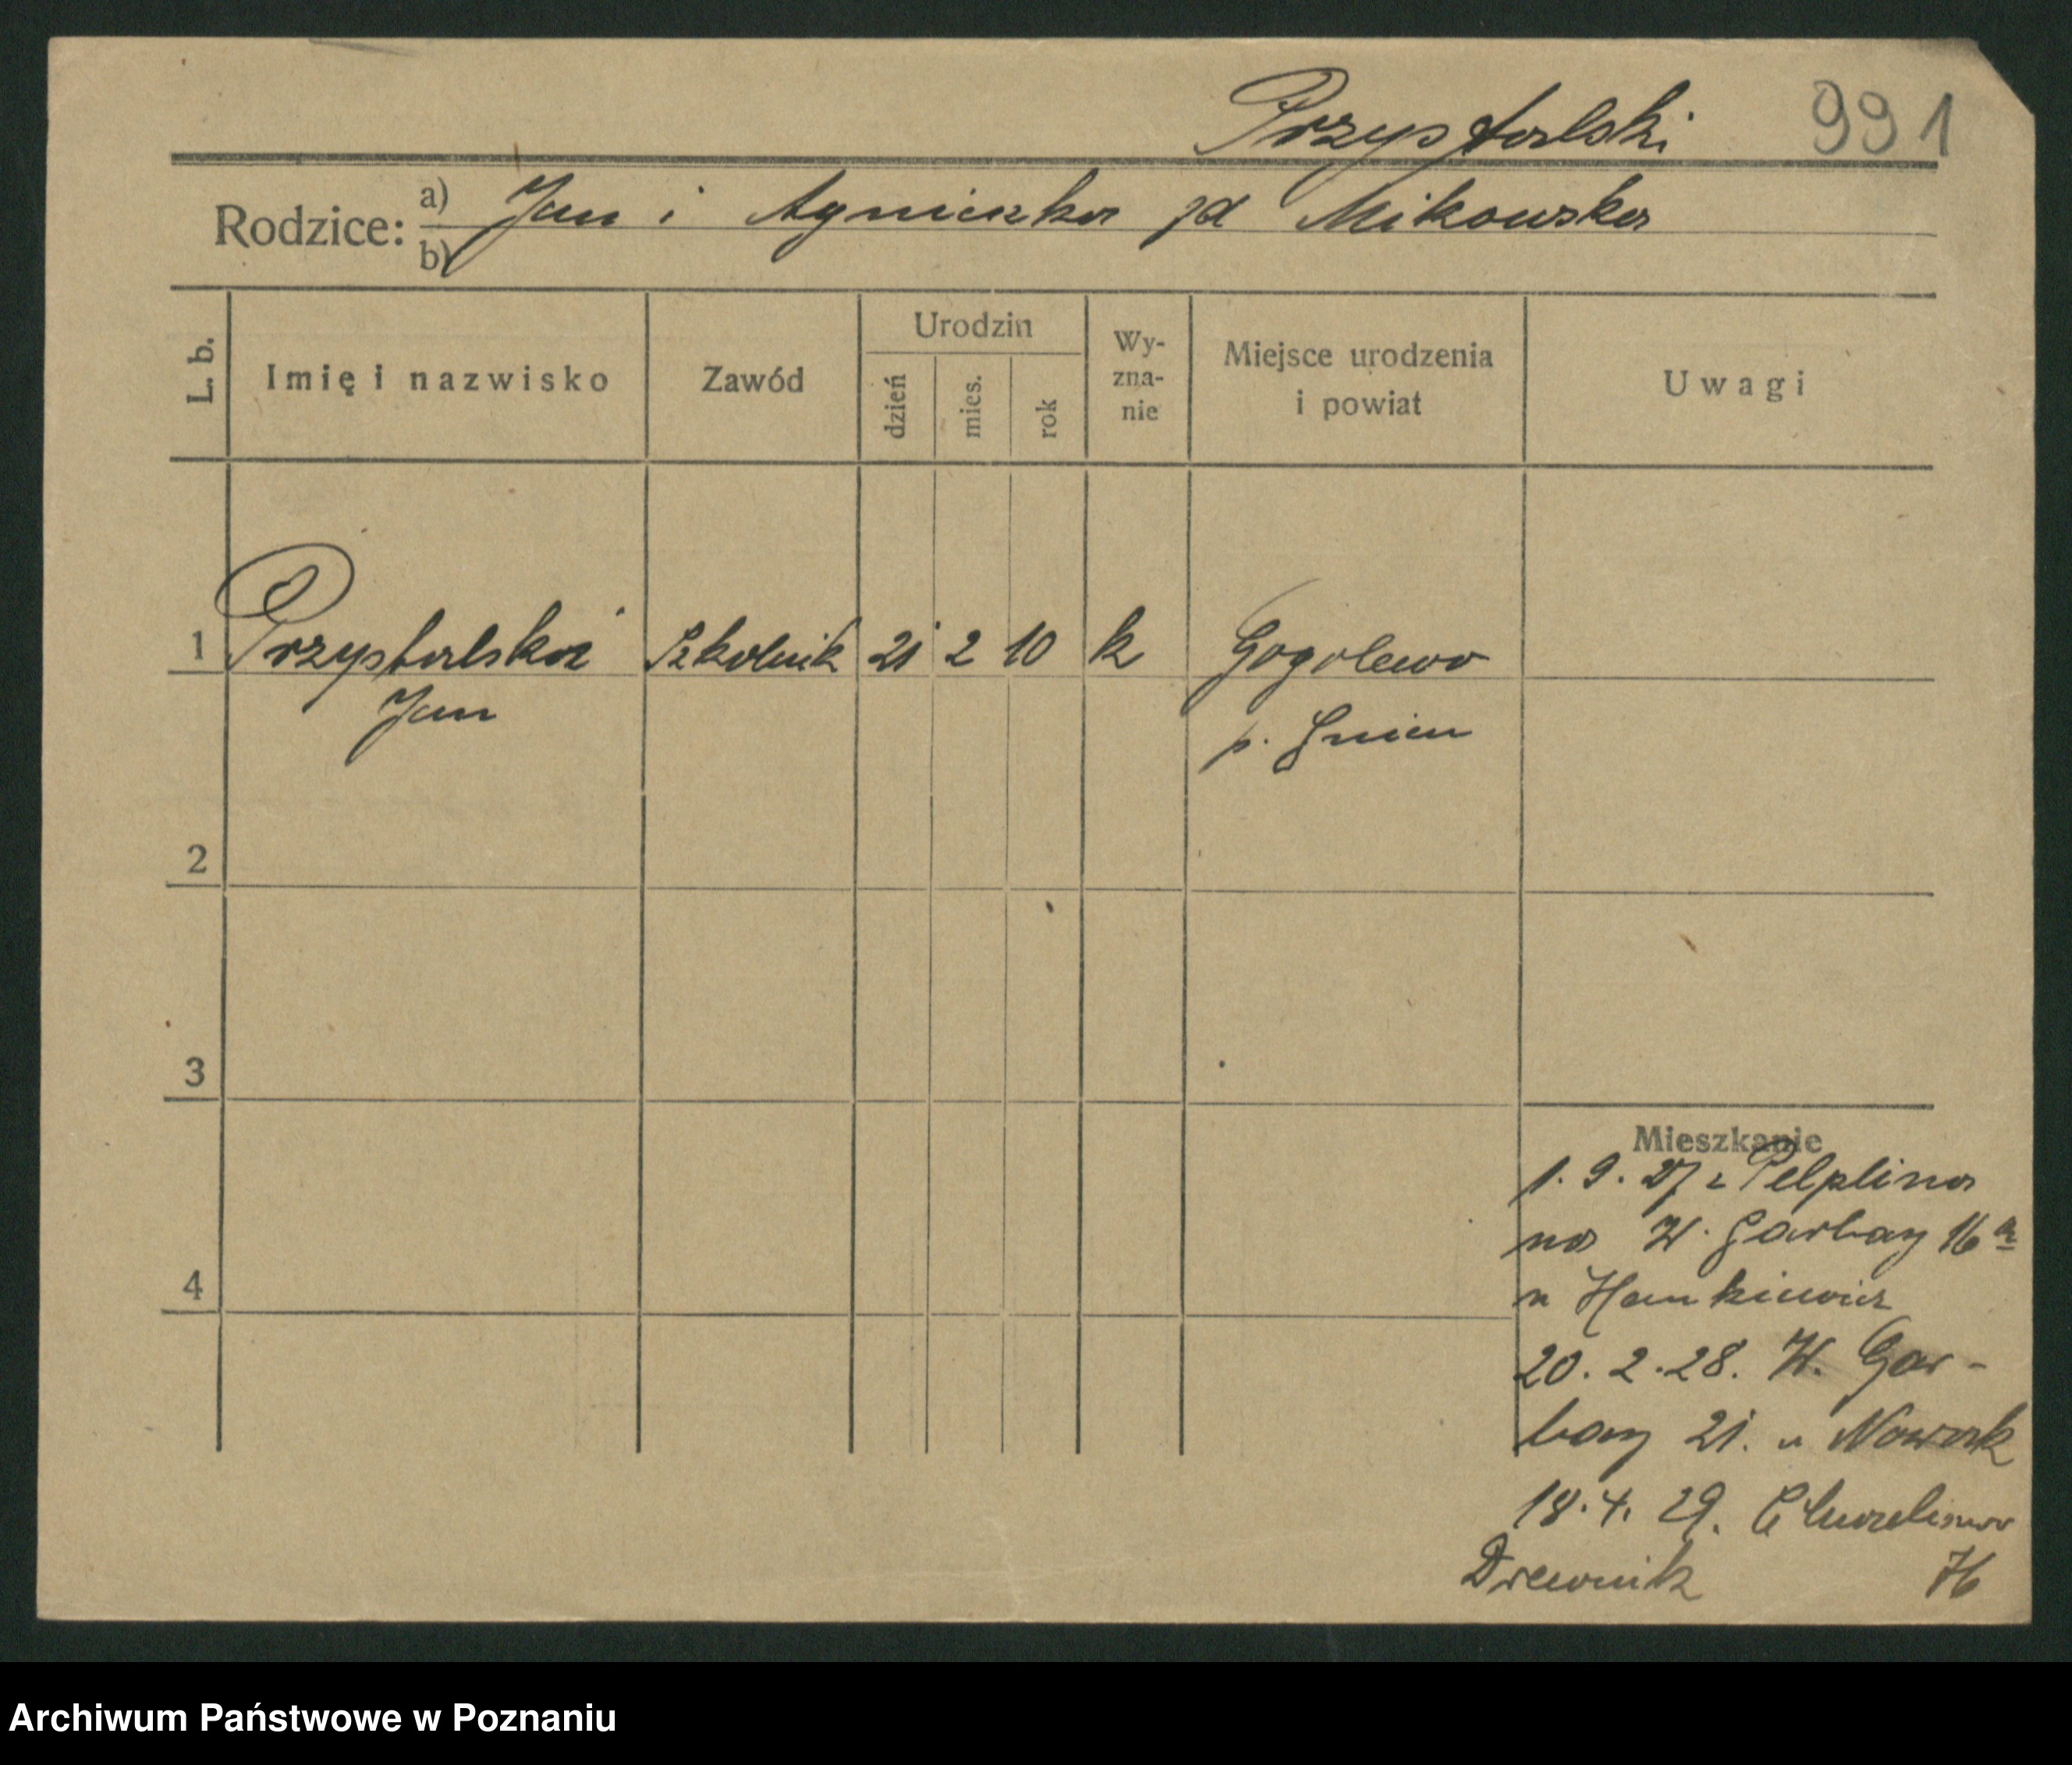 Przystalski 991
Rodzice: a) Jan i Agnieszka zd Mikowska
b)
L. b. Imię i nazwisko Zawód Urodzin dzień mies. rok Wy-zna-nie Miejsce urodzenia i powiat Uwagi
1 Przystalski Szkolnik 21 2 10 k Gogolewo
Jan p. Gniew
2
3
4
Mieszkanie
1. 9. 27 z Pelplina
na W. Garbary 16 a
u Hankiewicz
20. 2. 28. W. Gar-
bary 21. u Nowak
18. 4. 29.
Drewnik
Archiwum Państwowe w Poznaniu